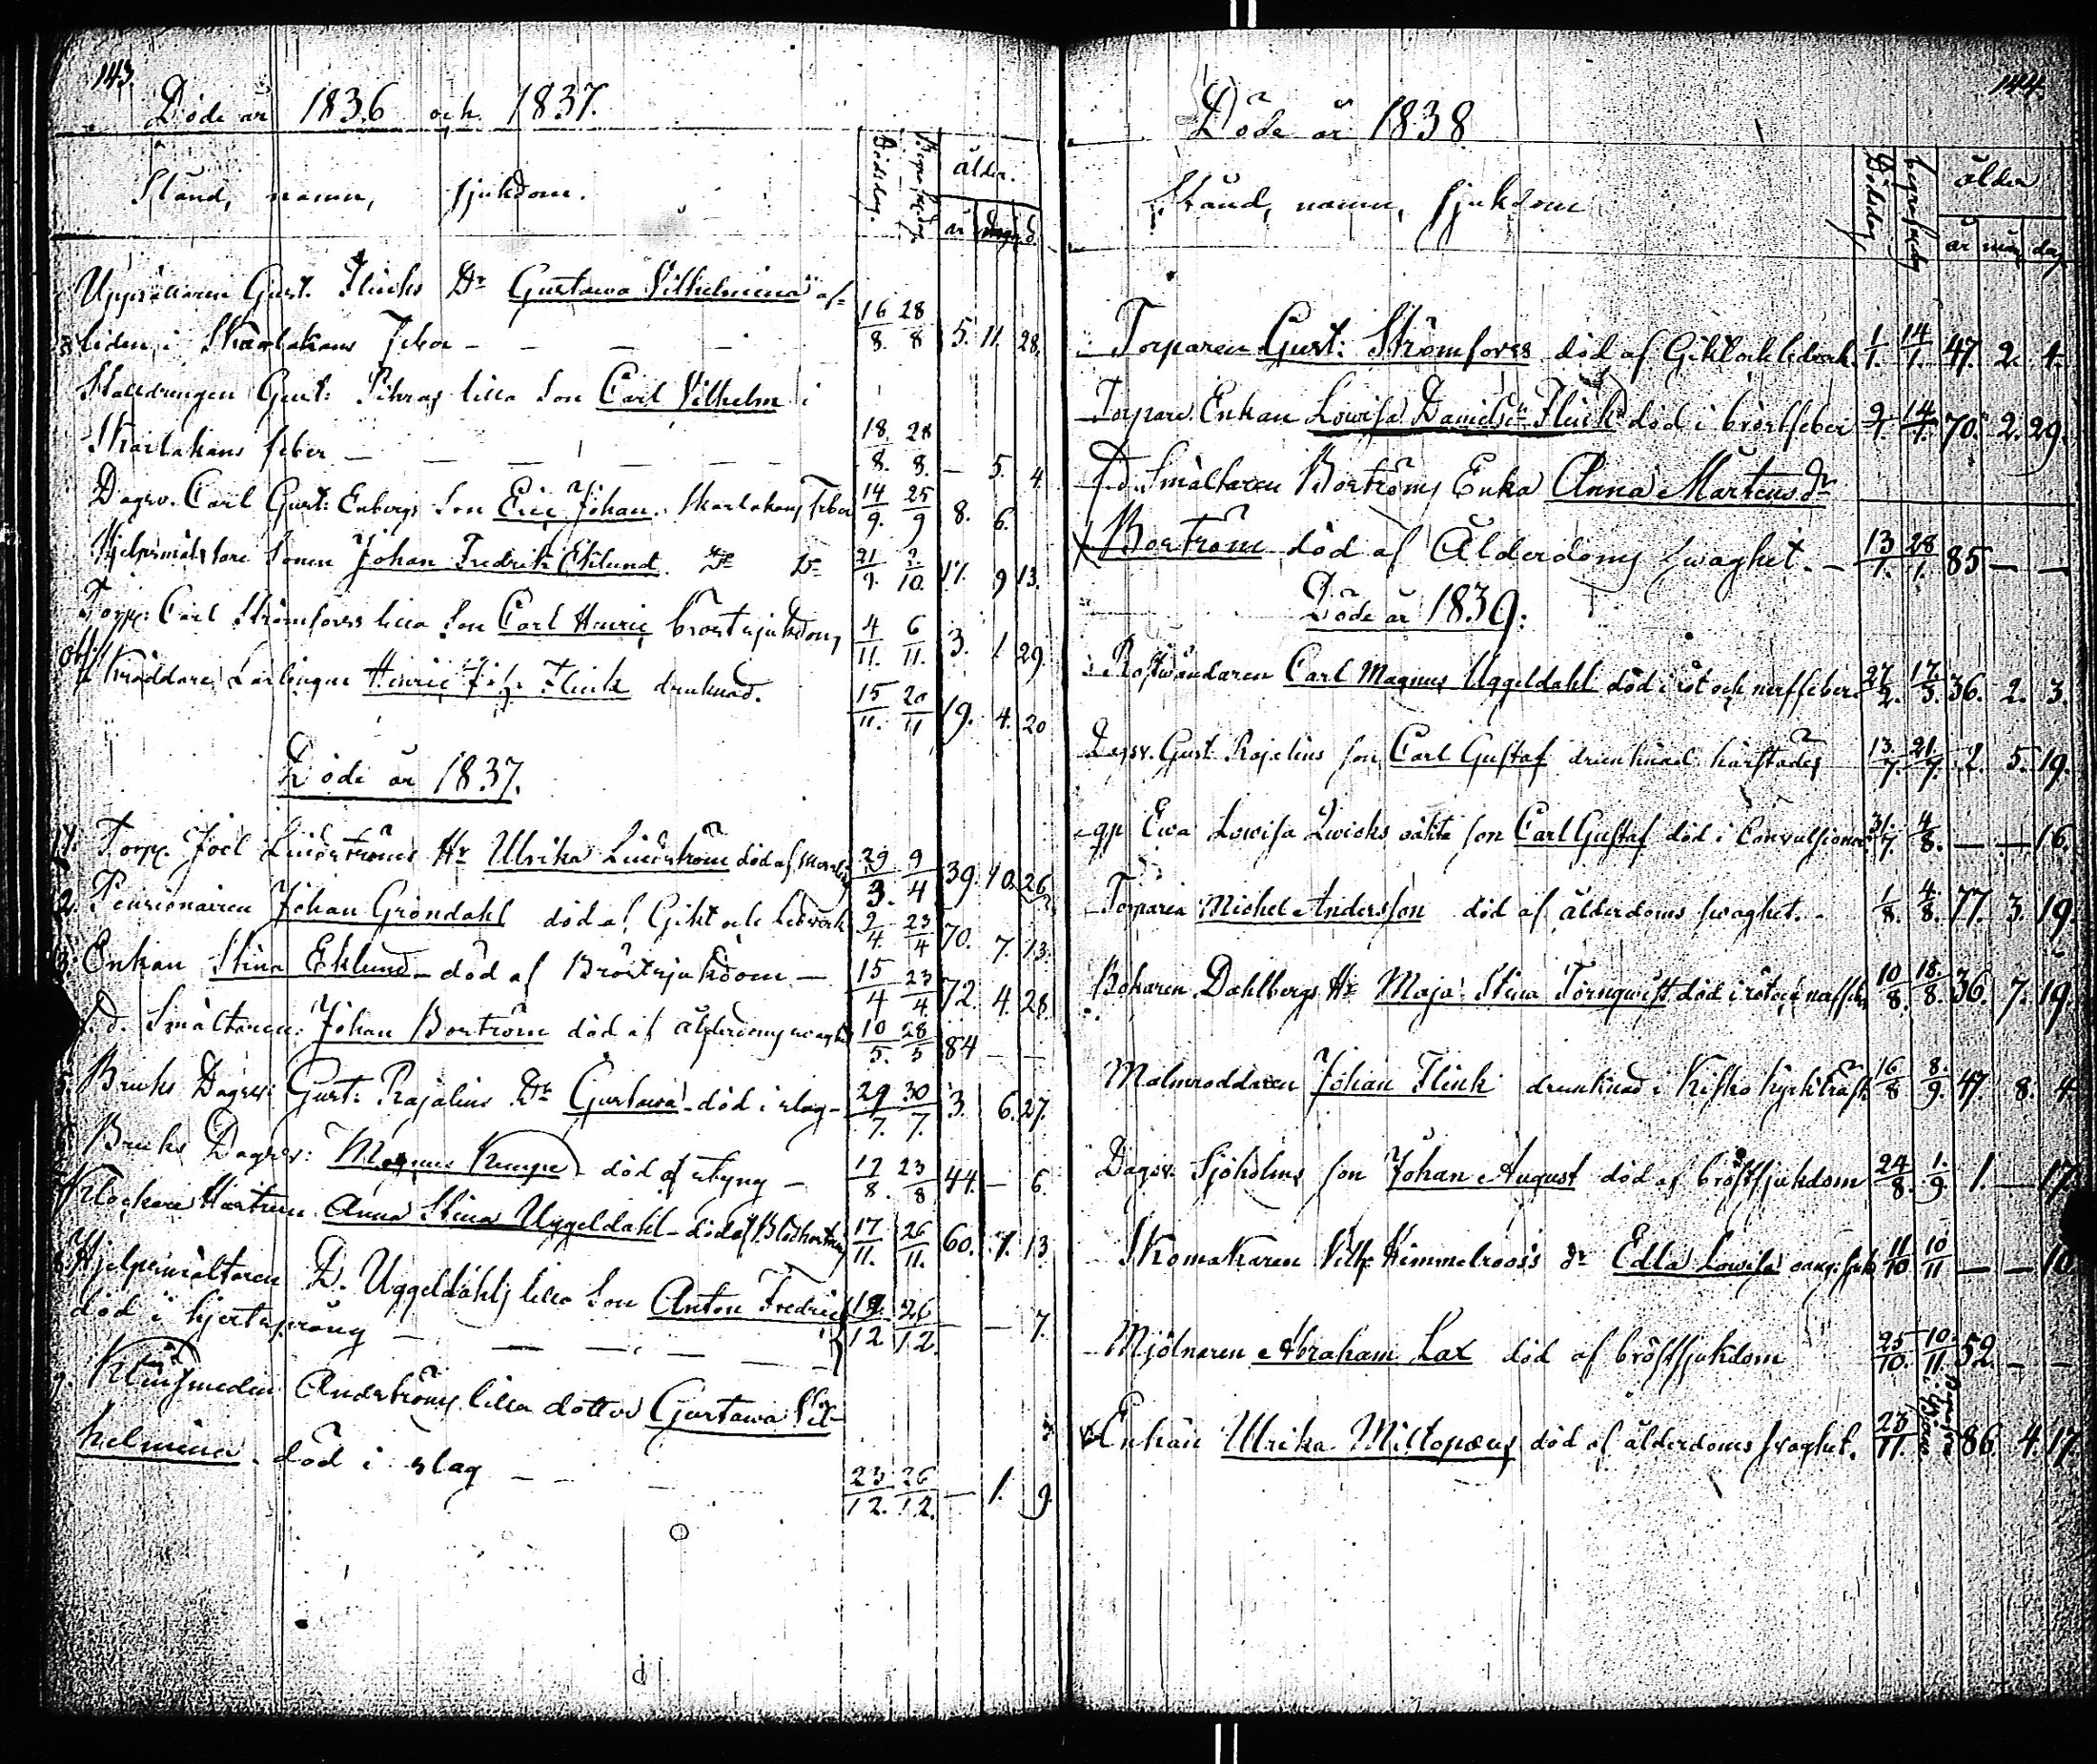 143.
Döde år 1836 och 1837.
Stånd, namn, sjukdom. Dödsdag. Begrafn.dag ålder. år d.
Gust. Flinks Dr Gustawa Vilhelmina af-
liden i Skarlakans feber — — — — 16/8. 28/8 5. 11. 28.
Gust: lilla Son Carl Vilhelm i
Skarlakans feber — — — — — — 18/8. 28/8. — 5. 4.
Dagsv. Carl Gust: Enbergs Son Eric Johan. Skarlakans feber 14/9. 25/9 8. 6.
Sonen Johan Fredrik Eklund. Do Do 21/9. 2/10. 17. 9 13.
Torp: Carl Strömfors lilla Son Carl Henric bröstsjukdom, 4/11. 6/11. 3. 1. 29.
Skräddare Lärlingen Henric Joh. Flink drunknad. 15/11. 20/11 19. 4. 20
Döde år 1837.
1. Torp. Joel Lindströms Hr Ulrika Lindström död af 29/3. 9/4 39. 10. 26
2. Pensionairen Johan Gröndahl död af Gikt och Ledvärk 2/4. 23/4 70. 7. 13.
3. Enkan Stina Eklund – död af Bröstsjukdom — 15/4 23/4. 72. 4. 28.
f.d. Smältaren: Johan Boström död af ålderdoms 10/5. 28/5 84 — —
5. Bruks Dagsv: Gust: Rajalins Dr Gustawa – död i slag – 29/7. 30/7. 3. 6. 27.
6. Bruks Dagsv: Magnus Kempe – död af styng – 17/8. 23/8 44. — 6.
Klockare Hustrun Anna Stina Uggeldahl – död af 17/11. 26/11. 60. 7. 13
Hjelpsmältaren D. Uggeldahls lilla Son Anton Fredric
död i hjertsprång — — — — 19/12 26/12. — — 7.
9. Klensmeden Anderströms lilla dotter Gustawa Vil-
helmina – död i slag — — 23/12. 26/12. — 1. 9.
144.
Döde år 1838.
Stånd, namn, sjukdom Dödsdag begrafndag ålder år mån dag
Torparen Gust: Strömfors död af Gikt och ledvärk. 1/1. 14/1. 47. 2. 4.
Torpare Enkan Lowisa Danielsdr Flink död i bröstfeber 2/1. 14/1. 70. 2. 29.
f.d. Smältaren Boströms Enka Anna Mårtensdr
Boström död af Ålderdoms swaghet. — 13/1. 28/1. 85 — —
Döde år 1839.
Rostwändaren Carl Magnus Uggeldahl död i röt och nerffeber 27/2. 17/3. 36. 2. 3.
Dagsv. Gust Rajalins son Carl Gustaf drunknad härstädes 13/7. 21/7. 2. 5. 19.
qp Ewa Lowisa Qwicks oäkta son Carl Gustaf död i Convulsioner 31/7. 4/8. — — 16.
Torparen Michel Andersson död af ålderdoms swaghet. – 1/8. 4/8. 77. 3. 19.
Bokaren Dahlbergs Hr Maja Stina Törnqwist död i röt och nerffeber 10/8. 18/8. 36. 7. 19.
Malmroddaren Johan Flink drunknad i Kisko Kyrkträsk 16/8 8/9. 47. 8. 4
Dagsv. Sjöholms son Johan August död af bröstsjukdom 24/8. 1/9. 1. — 17.
Skomakaren Vilh. Himmelroos's dr Edla Lowisa 11/10 10/11 — — 10
Mjölnaren Abraham Lax död af bröstsjukdom 25/10. 10/11. 52. — —
Enkan Ulrika Miltopæus död af ålderdoms swaghet. 23/11. 86. 4. 17.